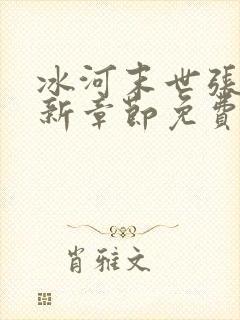 冰河末世张
新章节免费
肖雅文